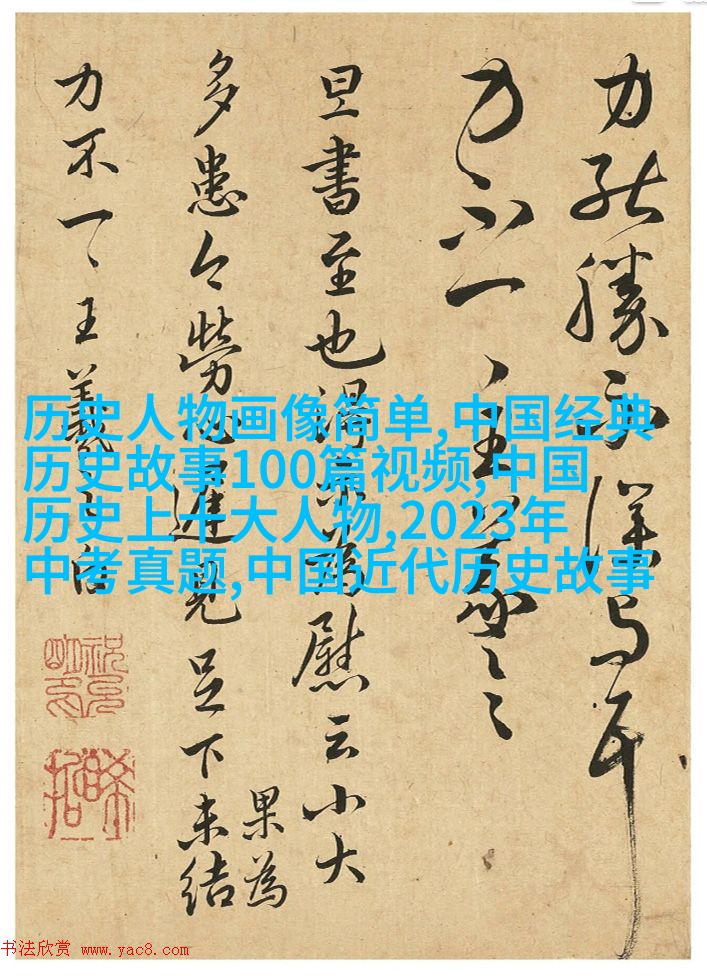 力不一
旦書至也得示為慰云小大
多患念勞心遲見足下未結
果為
力不一丶王羲之白
历史人物画像简单,中国经典
历史故事100篇视频,中国
历史上十大人物,2023年
中考真题,中国近代历史故事
书法欣赏 www.yac8.com